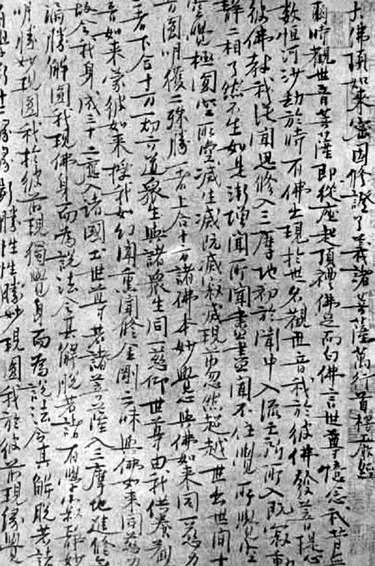 大佛頂如來密因修證了義諸菩薩萬行首楞嚴經
爾時觀世音菩薩即從座起頂禮佛足而白佛言世尊憶念我昔無
數恒河沙劫於時有佛出現於世名觀世音我於彼佛發菩提心
彼佛教我從聞思修入三摩地初於聞中入流亡所所入既寂動
靜二相了然不生如是漸增聞所聞盡盡聞不住覺所覺空
空覺極圓空所空滅生滅既滅寂滅現前忽然超越世出世間十
方圓明獲二殊勝一者上合十方諸佛本妙覺心與佛如來同慈力
二者下合十方一切六道眾生與諸眾生同一悲仰世尊由我供養觀
音如來蒙彼如來授我如幻聞熏聞修金剛三昧與佛如來同慈力
故令我身成三十二應入諸國土世尊若諸菩薩入三摩地進修無
漏勝解圓我現佛身而為說法令其解脫若諸有學寂靜妙
明勝妙現圓我於彼前現獨覺身而為說法令其解脫若諸
有學斷十二緣緣斷勝性勝妙現圓我於彼前現緣覺